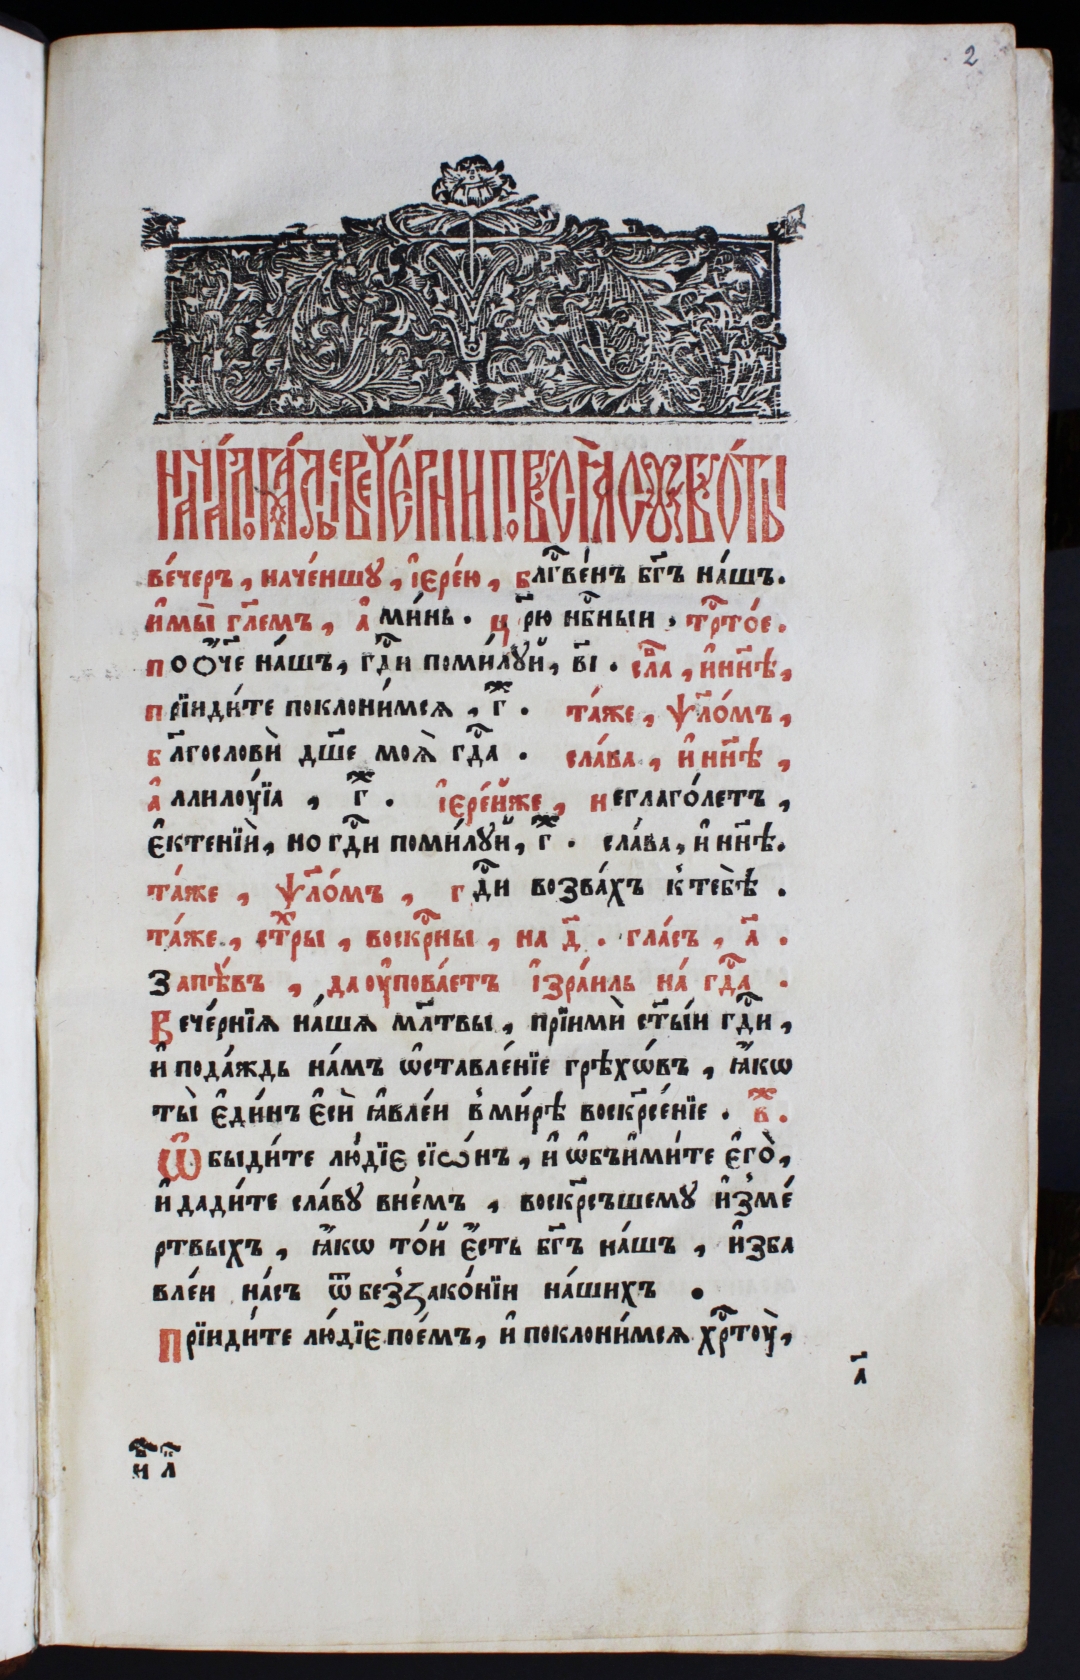 2
НАЧА́ЛО ГЛА́СЪ А҃ ВЕЧЕ́РНИ ПѠ ВСѦ̀ СУББѠ́ТЫ
ве́черъ, наче́ншу, і҆ере́ю, блгⷭ҇ве́нъ бг҃ъ на́шъ.
и҆мы̀ гл҃емъ, а҆ми́нь. цр҃ю нбⷭ҇ныи, трⷭ҇то́е.
по ѻ҆́ч҃е на́шъ, гдⷭ҇и поми́лꙋй, в҃і. сла҃ва, и҆ ни҃нѣ,
прїиди́те поклони́мсѧ, гⷤ҃. та́же, ѱало́мъ,
бл҃гословѝ дш҃е моѧ̀ гдⷭ҇а. сла́ва, и҆ нн҃ѣ,
а҆ллилꙋ́їа, гⷤ҃. і҆ере́йже, неглаго́летъ,
є҆ктенїи̑, но гдⷭ҇и поми́лꙋй, гⷤ҃. сла́ва, и҆ нн҃ѣ.
та́же, ѱало́мъ, гдⷭ҇и возва́хъ к̾тебѣ̀.
та́же, стⷯры, воскрⷭ҇ны, на д҃. гла́съ, а҃.
Запѣ́въ, да ᲂу҆пова́етъ і҆зра́иль на́ гдⷭ҇а.
Вече́рнїѧ на́шѧ мл҃твы, прїимѝ ст҃ы́и гдⷭ҇и,
и҆ пода́ждь на́мъ ѡ҆ставле́нїе грѣхѡ́въ, ꙗ҆́кѡ
ты̀ є҆ди́нъ є҆сѝ ꙗ҆вле́и в̾ми́рѣ воскрⷭ҇е́нїе. вⷤ҃.
Ѡ҆быди́те лю́дїє сїѡ́нъ, и҆ ѡ҆бъи҆ми́те є҆го̀,
и҆ дади́те сла́вꙋ вне́мъ, воскрⷭ҇ъшемꙋ и҆з̾ме́
ртвыхъ, ꙗ҆́кѡ то́й є҆́сть бг҃ъ на́шъ, и҆зба
вле́и на́съ ѿ без̾зако́нїи на́шихъ.
Прїиди́те лю́дїє пое́мъ, и҆ поклони́мсѧ хрⷭ҇тᲂу̀,
а҃